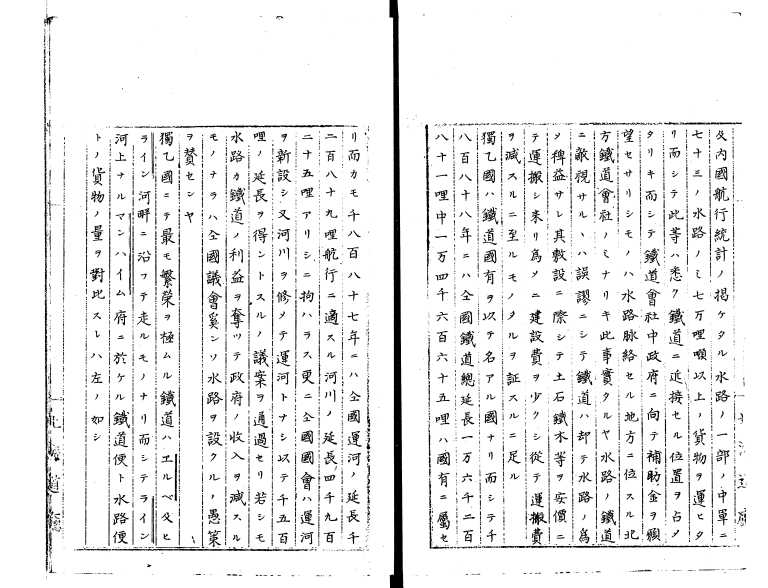 及内國航行統計ノ掲ケタル水路ノ一部ノ中單ニ
七十三ノ水路ノミ七万哩噸以上ノ貨物ヲ運ヒタ
リ而シテ此等ハ悉ク鐵道ニ近接セル位置ヲ占メ
タリキ而シテ鐵道會社中政府ニ向テ補助金ヲ願
望セサリシモノハ水路脉絡セル地方ニ位スル北
方鐵道會社ノミナリキ此事實タルヤ水路ノ鐵道
ニ敵視サルヽハ誤謬ニシテ鐵道ハ却テ水路ノ為
メ稗益サレ其敷設ニ際シテ土石鐵木等ヲ安價ニ
テ運搬シ来リ為メニ建設費ヲ少クシ從テ運搬費
ヲ减スルニ至ルモノタルヲ証スルニ足ル
獨乙國ハ鐵道國有ヲ以テ名アル國ナリ而シテ千
八百八十八年ニハ全國鐵道總延長一万六千二百
八十一哩中一万四千六百六十五哩ハ國有ニ屬セ
リ而カモ千八百八十七年ニハ全國運河ノ延長千
二百八十九哩航行ニ適スル河川ノ延長四千九百
二十五哩アリシニ拘ハラス更ニ全國國會ハ運河
ヲ新設シ又河川ヲ修メテ運河トナシ以テ千五百
哩ノ延長ヲ得ントスルノ議案ヲ通過セリ若シモ
水路カ鐵道ノ利益ヲ奪ツテ政府ノ收入ヲ减スル
モノナラハ全國議會奚ンソ水路ヲ設クルノ愚策
ヲ賛センヤ
獨乙國ニテ最モ繁榮ヲ極ムル鐵道ハエルベ及ヒ
ライン河畔ニ沿フテ走ルモノナリ而シテライン
河上ナルマンハイム府ニ於ケル鐵道便ト水路便
トノ貨物ノ量ヲ對比スレハ左ノ如シ